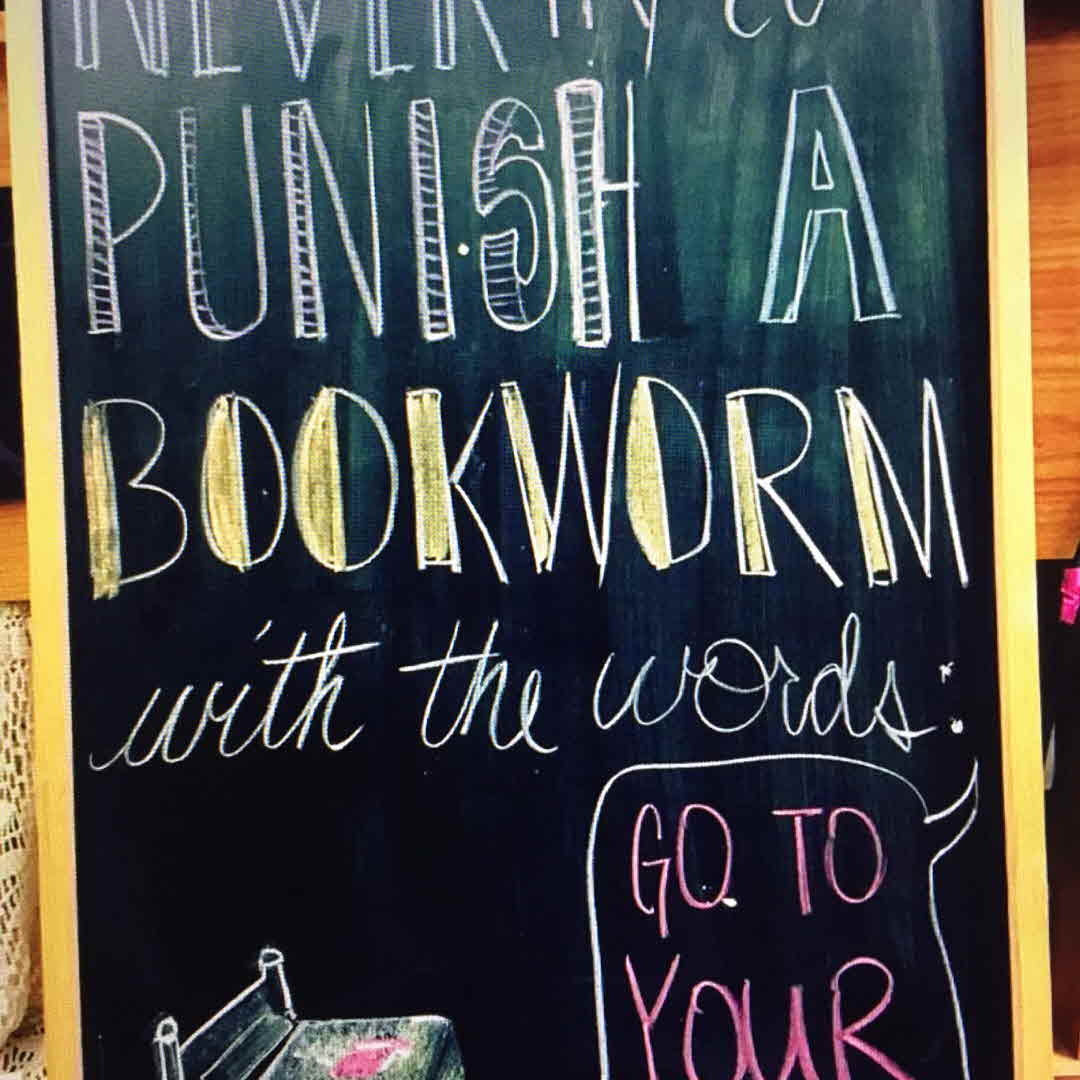 NEVER try
PUNISH A
BOOKWORM
with the words:
GO TO
YOUR